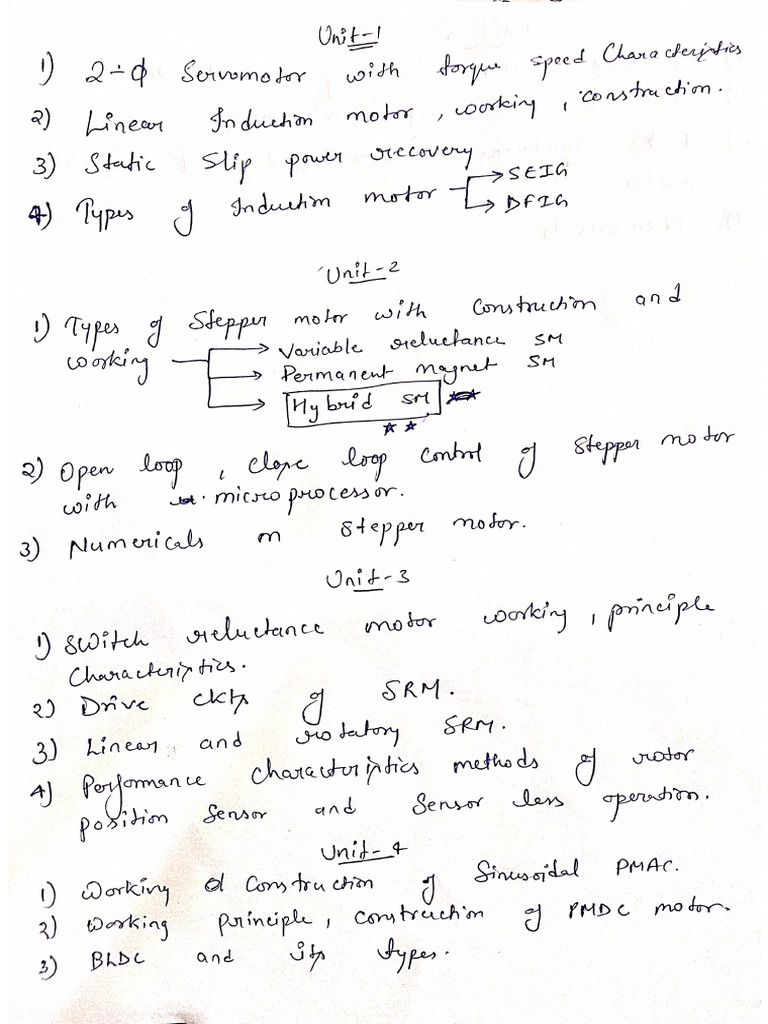 Unit-1
1) 2-ϕ Servomotor with torque speed Characteristics
2) Linear Induction motor, working, construction.
3) Static Slip power recovery
4) Types of Induction motor → SEIG
→ DFIG
Unit-2
1) Types of Stepper motor with Construction and
working → Variable reluctance SM
→ Permanent magnet SM
→ Hybrid SM
2) Open loop, close loop control of stepper motor
with microprocessor.
3) Numericals on Stepper motor.
Unit-3
1) Switch reluctance motor working, principle
Characteristics.
2) Drive ckts of SRM.
3) Linear and rotatory SRM.
4) Performance characteristics methods of rotor
position Sensor and Sensor less operation.
Unit-4
1) Working & Construction of Sinusoidal PMAC.
2) Working principle, construction of PMDC motor.
3) BLDC and its types.